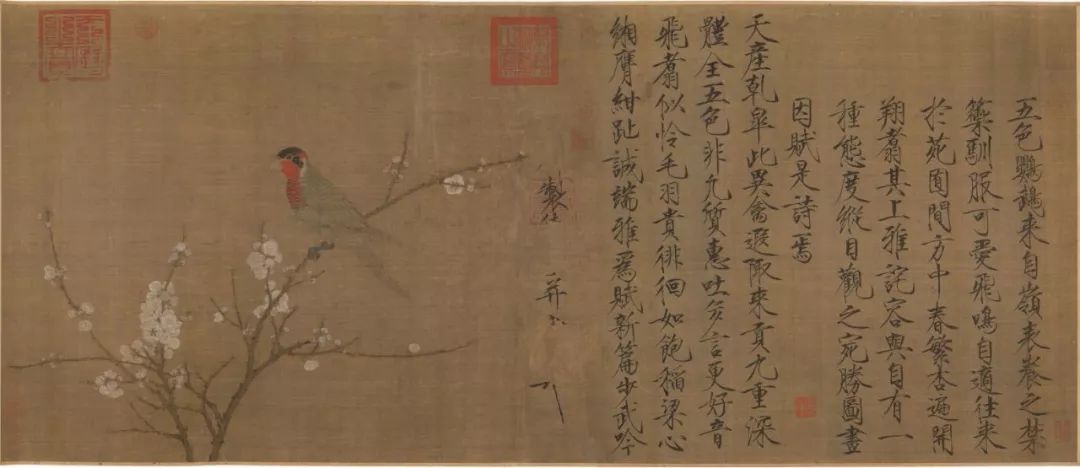 五色鸚鵡來自嶺表養之禁
籞馴服可愛飛鳴自適往來
於苑囿間方中春繁杏遍開
翔翥其上雅詫容與自有一
種態度縱目觀之宛勝圖畫
因賦是詩焉
天產乾皐此異禽遐陬來貢九重深
體全五色非凡質惠吐多言更好音
飛翥似憐毛羽貴徘徊如飽稻粱心
緗膺紺趾誠端雅為賦新篇步武吟
製
并